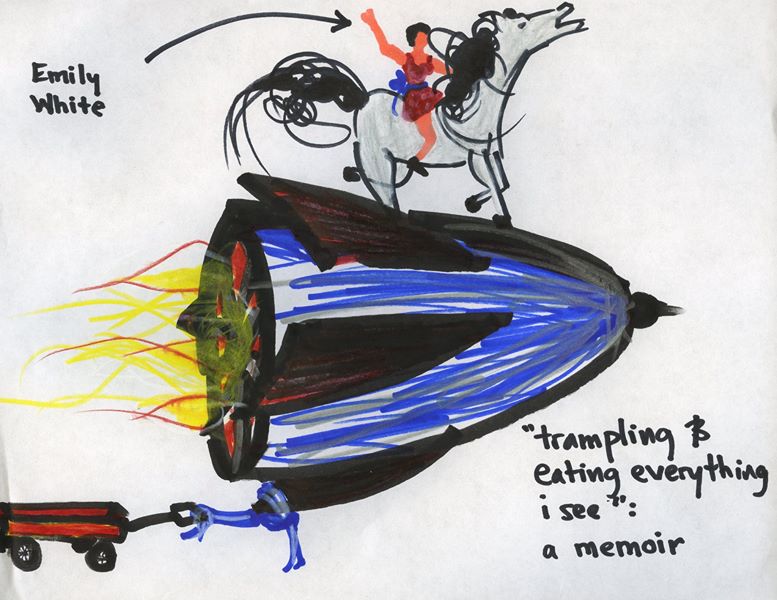 Emily
White
"trampling &
eating everything
i see":
a memoir